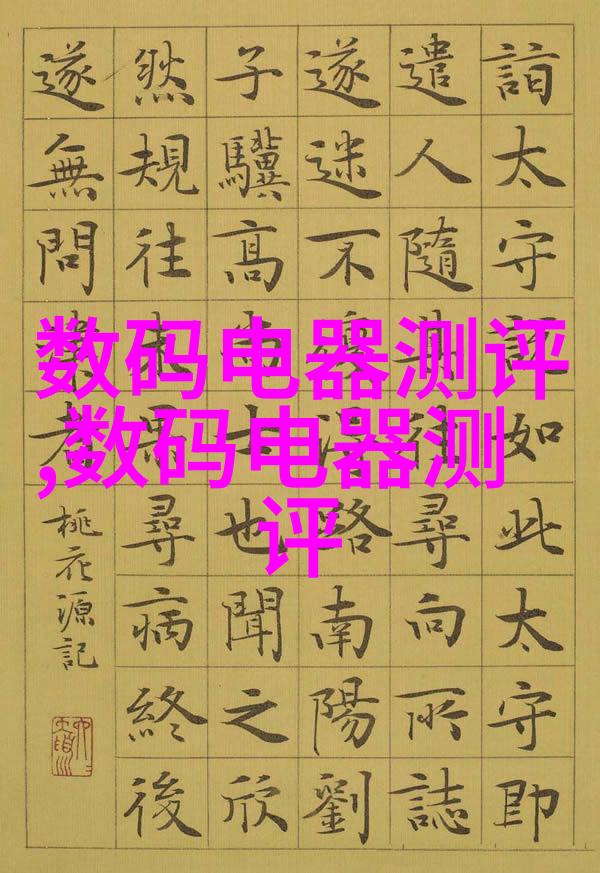 詣太守說如此太守即
遣人隨其往尋向所誌
遂迷不復得路南陽劉
子驥高尚士也聞之欣
然規往未果尋病終後
遂無問津者
桃花源記
数码电器测评
,数码电器测
评